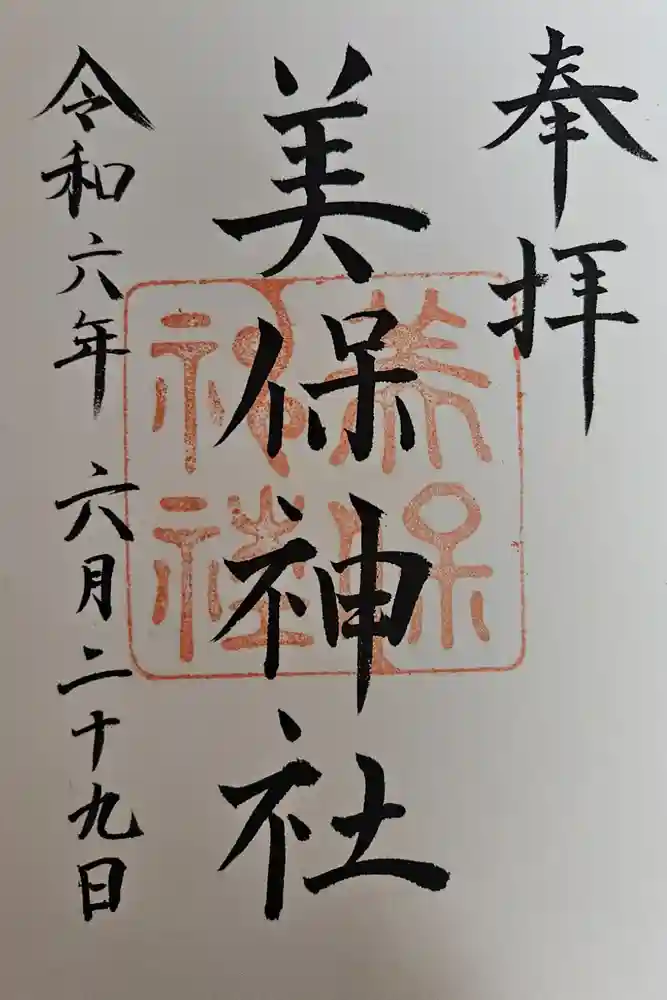 奉拝
美保神社
令和六年六月二十九日
美保
神社